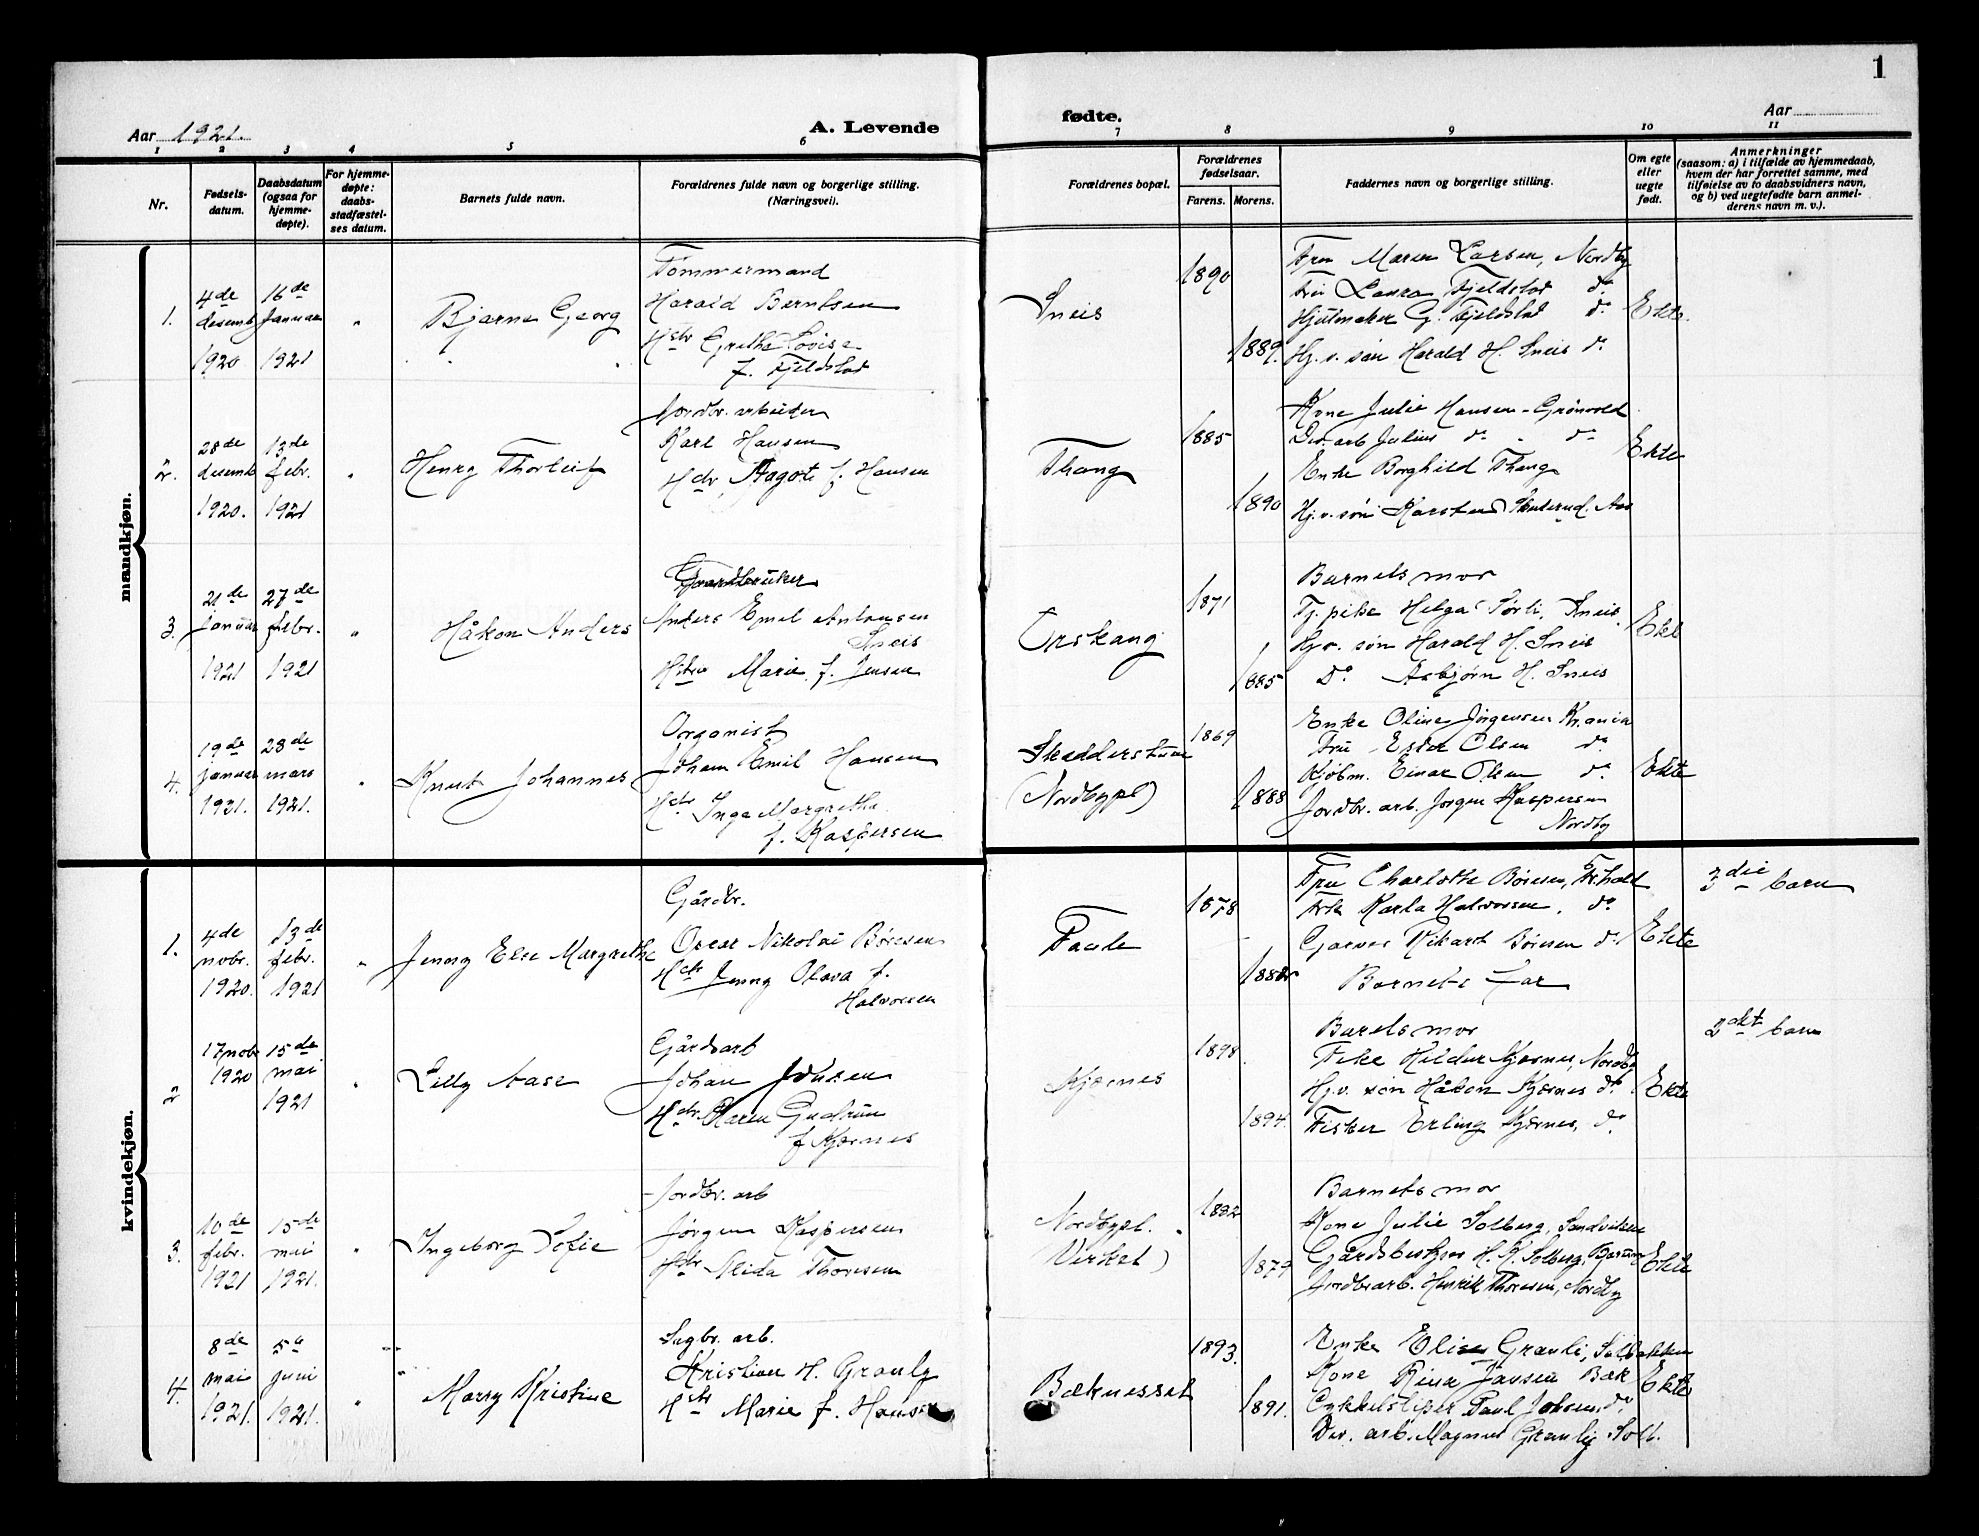 1
Aar 1921.
A. Levende
fødte.
Aar
1 2 3 4 5 6 7 8 9 10 11
Nr.
Fødsels-
datum.
Daabsdatum
(ogsaa for
hjemme-
døpte).
For hjemme-
døpte:
daabs-
stadfæstel-
ses datum.
Barnets fulde navn.
Forældrenes fulde navn og borgerlige stilling.
(Næringsvei).
Forældrenes bopæl.
Forældrenes
fødselsaar.
Farens. Morens.
Faddernes navn og borgerlige stilling.
Om egte
eller
uegte
født.
Anmerkninger
(saasom: a) i tilfælde av hjemmedaab,
hvem der har forrettet samme, med
tilføielse av to daabsvidners navn,
og b) ved uegtefødte barn anmel-
derens navn m. v.).
mandkjøn.
1.
4de
desemb
1920
16de
Januar
1921
"
Bjarne Georg
Tømmermand
Harald Berntsen
Hstr Grethe Lovise
f. Fjeldstad
Sneis
1890
1889.
Fru Maren Larsen, Nordby
Laura Fjeldstad do
G. Fjeldstad do
Hj. v. søn Harald H. Sneis do
Ekte.
2.
28de
desemb
1920.
13de
febr.
1921
"
Henry Thorleif
Jordbr. arbeider
Karl Hansen
Hstr Aagot f. Hansen
Thang
1885
1890
Kone Julie Hansen - Grønvold
Div. arb Julius do " do
Enke Borghild Thang
Hj. v. søn Karsten Aas
Ekte
3.
21de
Januar
1921
27de
febr.
1921
"
Håkon Anders
Gaardbruker
Anders Emil Antonsen
Sneis
Hstr Marie f. Jensen
Orskang
1871
1885
Barnets mor
Tj. pike Helga Sørli, Sneis.
Hj v. søn Harald H. Sneis
Do Asbjørn H. Sneis
Ekt
4.
19de
Januar
1921.
28de
mars
1921.
"
Knut Johannes
Organist
Johan Emil Hansen
Hstr Inga Margrethe
f. Kaspersen
(Nordbypl)
1869
1888
Enke Oline Jørgensen Kr.ania
Fru Ester Olsen do
Kjøbm. Einar Olsen do
Jordbr. arb. Jørgen Kaspersen
Nordby
Ekte
kvindekjøn.
1.
4de
nobr.
1920.
13de
febr.
1921
"
Jenny Else Margrethe
Gårdbr.
Oscar Nikolai Børesen
Hstr Jenny Olava f.
Halvorsen
Faale
1878
Fru Charlotte Børesen,
Karla Halvorsen, do
Garver Rikard Børesen do
Barnets far
Ekte
3die barn
2
17 nobr
1920
15de
mai
1921
"
Lilly Aase
Gårdsarb
Johan Johnsen
Hstr Karen Gudrun
f Kjærnes
Kjærnes
1898
1894.
Barnets mor
Frke Hildur Kjærnes, Nordby
Hj. v. søn Håkon Kjærnes do
Fisker Erling Kjærnes, do
Ekte
2det barn
3.
10de
febr.
1921
15de
mai
1921.
"
Ingeborg Sofie
Jordbr. arb
Jørgen Kaspersen
Hstr Alida Thoresen
Nordbypl.
Virket)
1882
1879
Barnets mor
Kone Julie Solberg, Sandviken
Gårdsbestyrer H. K. Solberg, Bærum
Jordbrarb. Henrik Thoresen, Nordby
Ekte
4.
8de
mai
1921.
5te
juni
1921.
"
Marry Kristine
Sagbr. arb.
Kristian H. Graulig
Hstr Marie f. Hansen
Bæknesset
1893.
1891.
Enke Elise Grauli, Solbakken
Kone Rina Jansen Bæk
Cykkelsliper Paul Johnsen, do
Div. arb. Magnus Graulig Solb.
Ekte